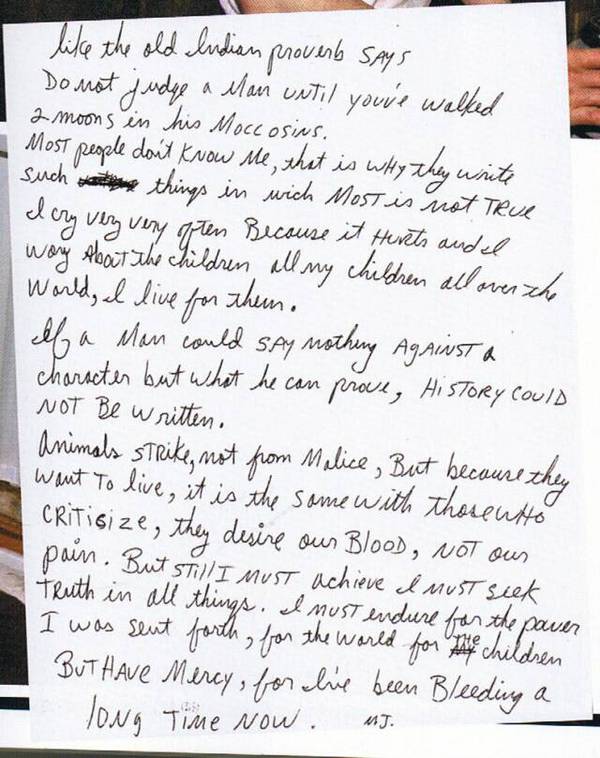 like the old Indian proverb SAYS
Do not judge a Man UNTil you've walked
2 moons in his Moccosins.
MOST people don't KNOW Me, that is WHy they write
such things in wich MOST is not TRUE
I cry very very often Because it HURts and I
wory About the children all my children all over the
World, I live for them.
If a Man could SAY nothing AGAINST a
character but what he can prove, HiSTORY COULD
NOT Be written.
Animals STRike, not from Malice, But because they
want To live, it is the same with those WHO
CRITisize, they desire our BLOOD, NOT our
pain. But STill I MUST achieve I MUST seek
TRuth in all things. I MUST endure for the power
I was sent forth, for the world for THE children
BUT HAVE Mercy, for I've been Bleeding a
lONg TiMe NOW. MJ.